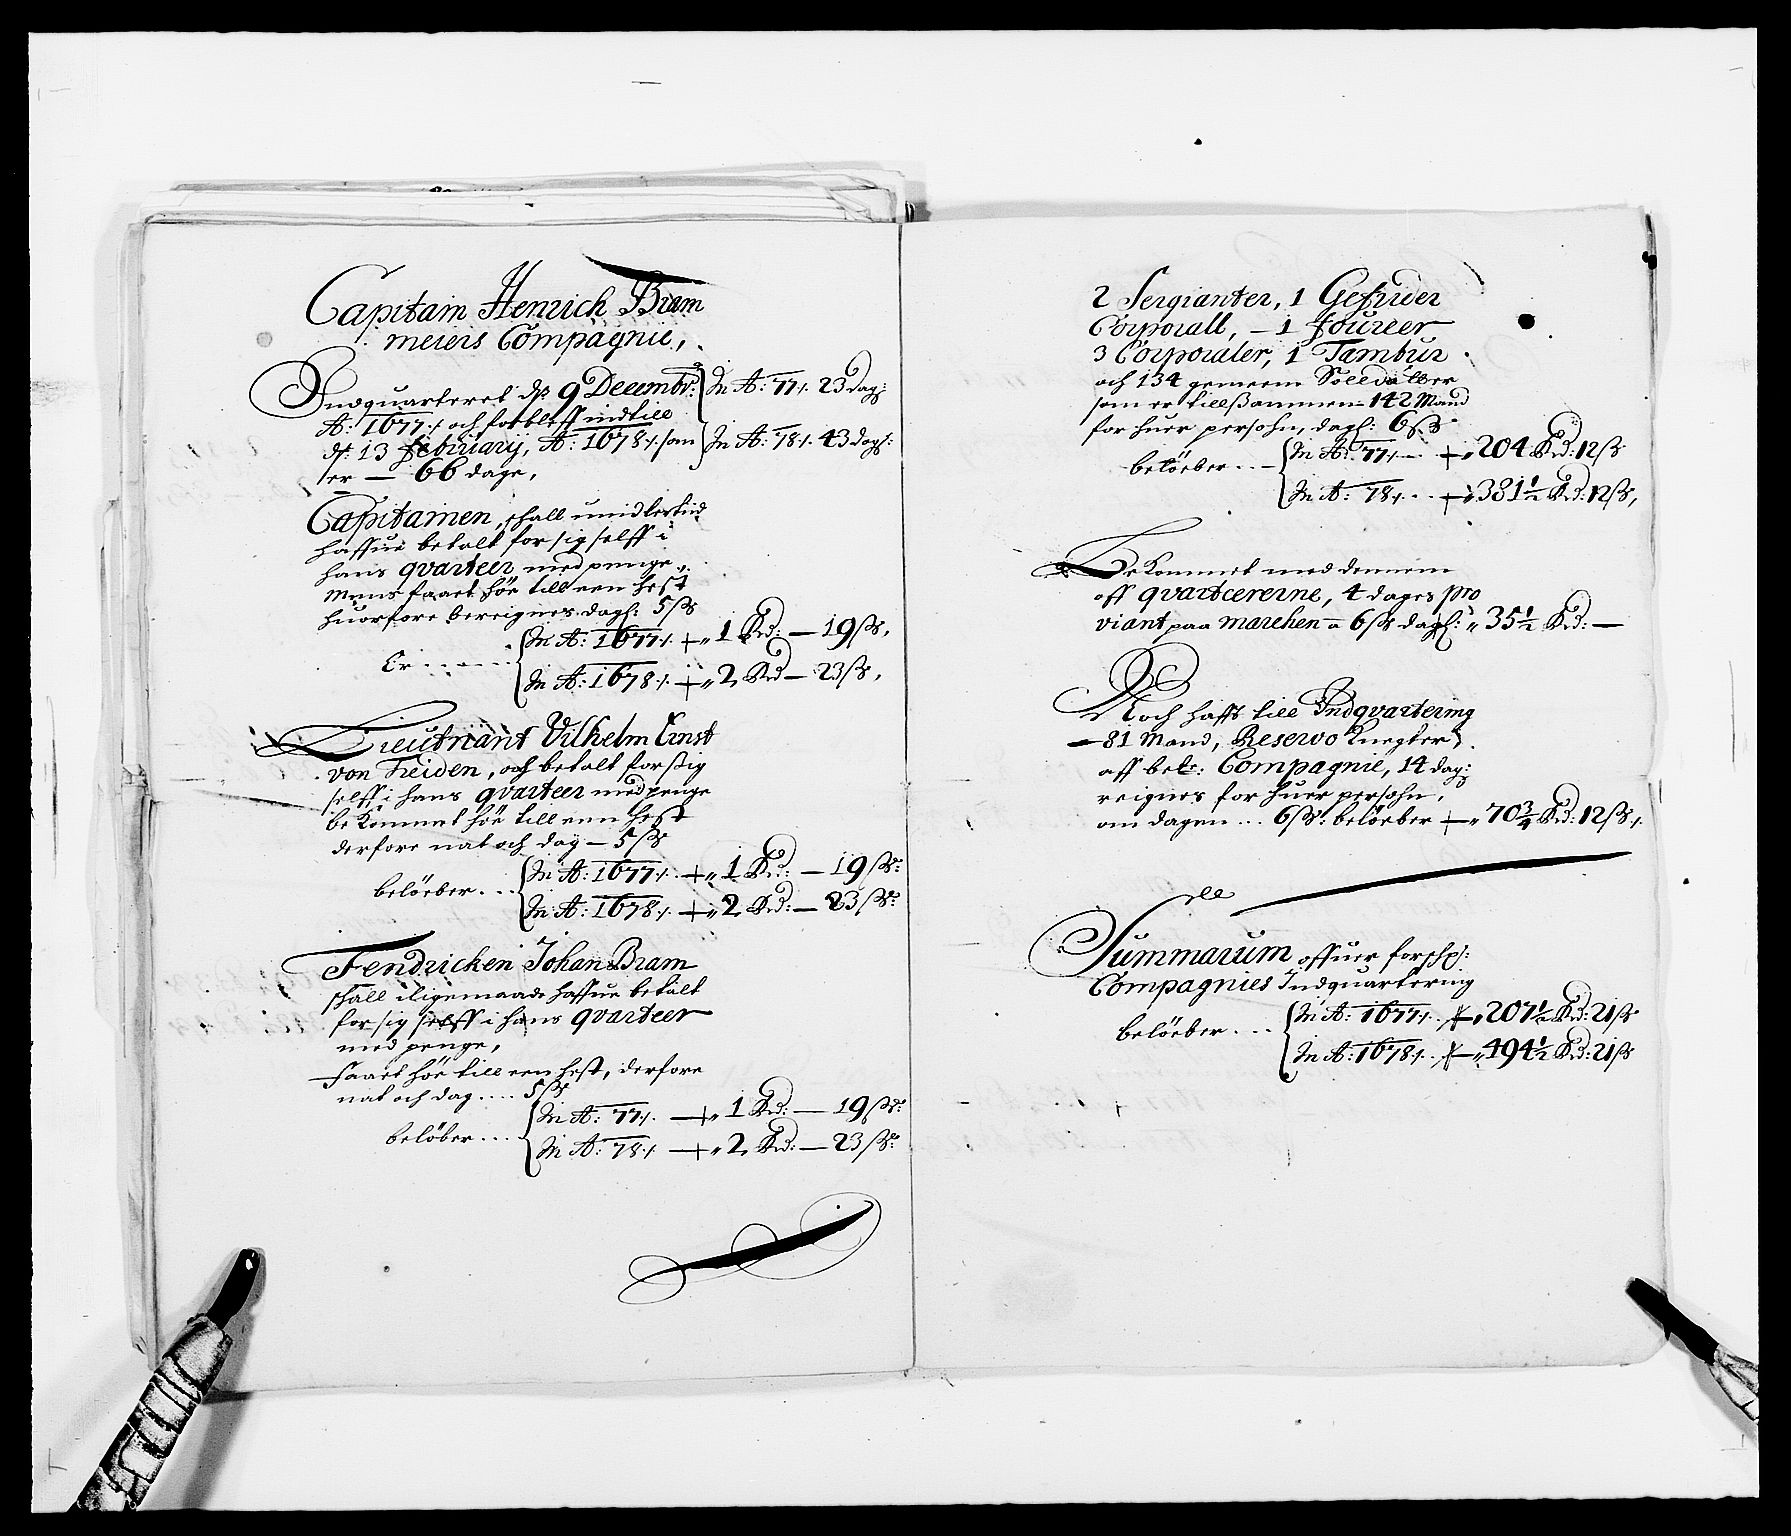 Capitain Henrich Bram
meiers Compagnie,
Indquarteret dß 9 Decembr: In Ao: 77/. 23 dag:
Ao: 1677/. och forbleff indtill
dß: 13 Februarij, Ao: 1678/. som In Ao: 78/. 43 dagß:
er — 66 dage,
Capitainen, schall imidlertiid
haffue betalt for sig selff i
hans qvarteer med penge,
Mens faaet höe till een hest
huorfore bereignes dagl: 5 ßr
In Ao: 1677/. 1 Rd: — 19 ßr,
Er
In Ao: 1678/. 2 Rd — 23 ßr,
Lieutnant Vilhelm Ernst
von Heiden, och betalt for sig
selff i hans qvarteer med penge
bekommet höe till een hest
derfore nat och dag — 5 ßr
In Ao: 1677/. 1 Rd: — 19 ßr:
belöeber
In Ao: 1678/. 2 Rd: — 23 ßr:
Fendricken Johan Bram
schall iligemaade haffue betalt
for sig selff i hans qvarteer
med penge,
faaet höe till een hest, derfore
nat och dag .... 5 ßr
In Ao: 77/. 1 Rd: — 19 ßr:
belöber
In Ao: 78/. 2 Rd: — 23 ßr:
2 Sergianter, 1 Gefrider
Corporall, — 1 Foureer
3 Corporaler, 1 Tambur
och 134 gemeene Solldatter
som er tillßammen 142 Mand
for huer persohn, dagl: 6 ßr
In Ao: 77/. 204 Rd: 12 ß
belöeber
In Ao: 78/. 381½ Rd: 12 ßr,
Bekommet med dennem
aff qvarteererne, 4 dages pro
viant paa marchen a 6 ßr dagl: 35½ Rd: —
Noch hafft till Indqvartering
— 81 Mand, Reservo Knegter
aff bete: Compagnie, 14 dag:
reignes for huer persohn,
om dagen ... 6 ßr: belöeber 70¾ Rd: 12 ßr.
Summarum offuer forschr:
Compagnies Indquartering
In Ao: 1677/. 207½ Rd: 21 ß
belöeber
In Ao: 1678/. 494½ Rd: 21 ß